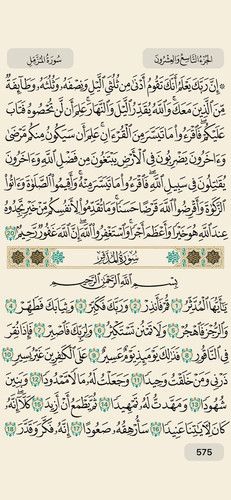 الجزء التاسع والعشرون سورة المزمل
۞ إن ربك يعلم أنك تقوم أدنى من ثلثي اليل ونصفه وثلثه وطائفة
من الذين معك والله يقدر اليل والنهار علم أن لن تحصوه فتاب
عليكم فاقرءوا ما تيسر من القرءان علم أن سيكون منكم مرضى
وءاخرون يضربون في الأرض يبتغون من فضل الله وءاخرون
يقتلون في سبيل الله فاقرءوا ما تيسر منه وأقيموا الصلوة وءاتوا
الزكوة وأقرضوا الله قرضا حسنا وما تقدموا لأنفسكم من خير تجدوه
عند الله هو خيرا وأعظم أجرا واستغفروا الله إن الله غفور رحيم 20
سورة المدثر
بسم الله الرحمن الرحيم
يأيها المدثر 1 قم فأنذر 2 وربك فكبر 3 وثيابك فطهر 4
والرجز فاهجر 5 ولا تمنن تستكثر 6 ولربك فاصبر 7 فإذا نقر
في الناقور 8 فذلك يومئذ يوم عسير 9 على الكفرين غير يسير 10
ذرني ومن خلقت وحيدا 11 وجعلت له مالا ممدودا 12 وبنين
شهودا 13 ومهدت له تمهيدا 14 ثم يطمع أن أزيد 15 كلا إنه
كان لأيتنا عنيدا 16 سأرهقه صعودا 17 إنه فكر وقدر 18
575